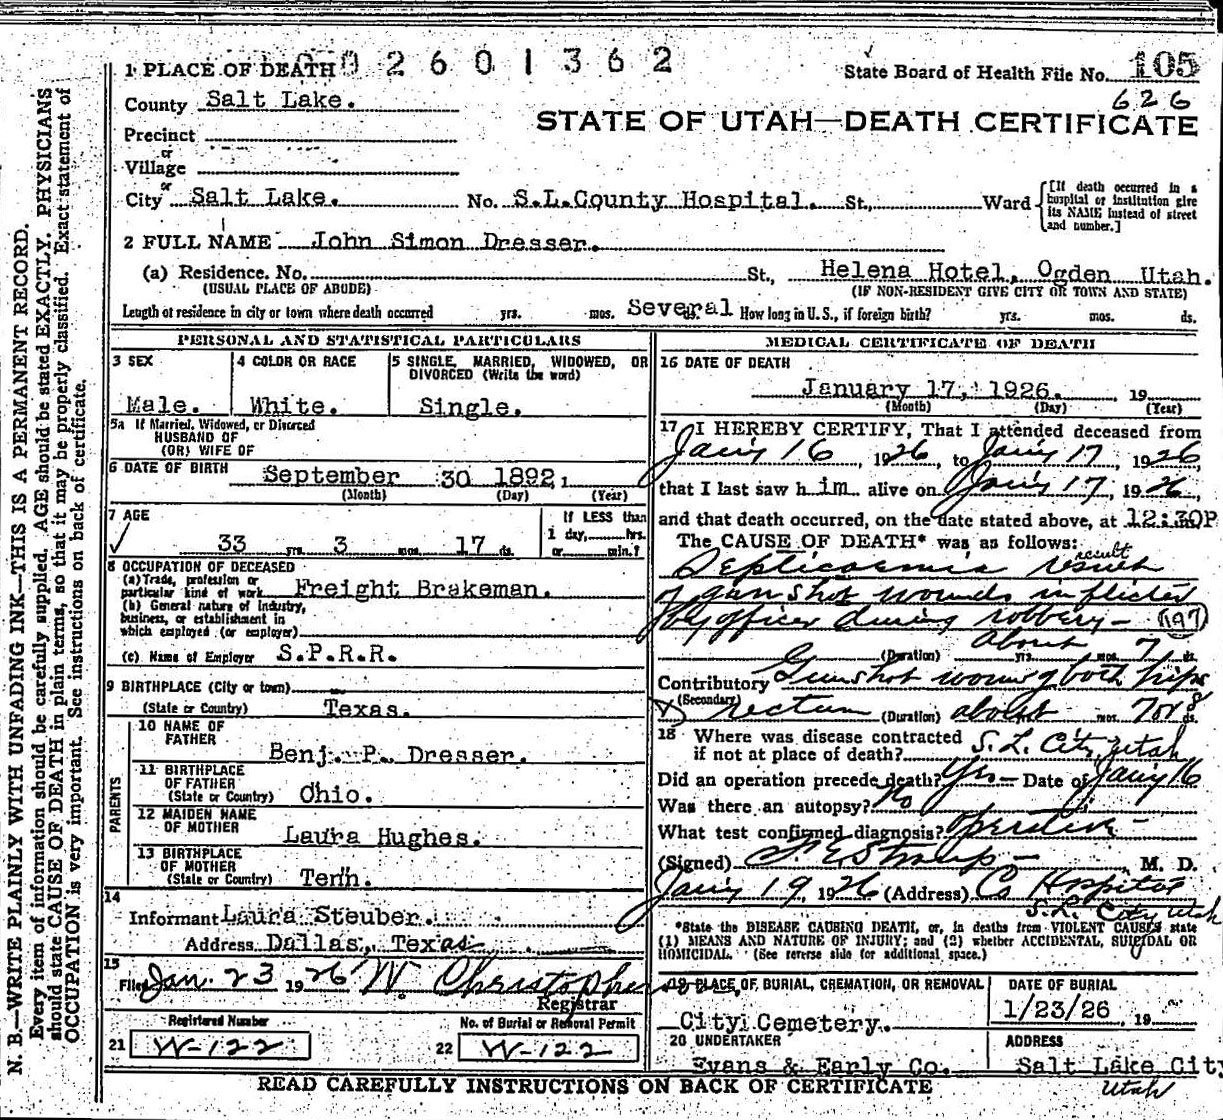 N. B.—WRITE PLAINLY WITH UNFADING INK—THIS IS A PERMANENT RECORD.
Every item of information should be carefully supplied. AGE should be stated EXACTLY. PHYSICIANS
should state CAUSE OF DEATH in plain terms, so that it may be properly classified. Exact statement of
OCCUPATION is very important. See instructions on back of certificate.
1 PLACE OF DEATH
2 6 0 1 3 6 2
State Board of Health File No. 105
626
County Salt Lake.
STATE OF UTAH—DEATH CERTIFICATE
Precinct
or
Village
or
City Salt Lake. No. S.L.County Hospital. St., Ward
[If death occurred in a
hospital or institution give
its NAME instead of street
and number.]
2 FULL NAME John Simon Dresser.
(a) Residence. No. St., Helena Hotel, Ogden Utah.
(USUAL PLACE OF ABODE) (IF NON-RESIDENT GIVE CITY OR TOWN AND STATE)
Length of residence in city or town where death occurred yrs. mos. Several ds. How long in U. S., if foreign birth? yrs. mos. ds.
PERSONAL AND STATISTICAL PARTICULARS
3 SEX
Male.
4 COLOR OR RACE
White.
5 SINGLE, MARRIED, WIDOWED, OR
DIVORCED (Write the word)
Single.
5a If Married, Widowed, or Divorced
HUSBAND OF
(OR) WIFE OF
6 DATE OF BIRTH September 30 1892
(Month) (Day) (Year)
7 AGE
33 yrs. 3 mos. 17 ds.
If LESS than
1 day, hrs.
or min.?
8 OCCUPATION OF DECEASED
(a) Trade, profession or
particular kind of work Freight Brakeman.
(b) General nature of Industry,
business, or establishment in
which employed (or employer)
(c) Name of Employer S.P.R.R.
9 BIRTHPLACE (City or town)
(State or Country) Texas.
PARENTS
10 NAME OF
FATHER Benj. P. Dresser.
11 BIRTHPLACE
OF FATHER
(State or Country) Ohio.
12 MAIDEN NAME
OF MOTHER Laura Hughes.
13 BIRTHPLACE
OF MOTHER
(State or Country) Tenn.
14
Informant Laura Steuber.
Address Dallas, Texas
15
Filed Jan. 23 1926 W. Christopherson
Registrar
Registered Number
21 W-122
No. of Burial or Removal Permit
22 W-122
MEDICAL CERTIFICATE OF DEATH
16 DATE OF DEATH
January 17, 1926. 19
(Month) (Day) (Year)
17 I HEREBY CERTIFY, That I attended deceased from
Jany 16, 1926, to Jany 17, 1926,
that I last saw him alive on Jany 17, 1926,
and that death occurred, on the date stated above, at 12:30P
The CAUSE OF DEATH* was as follows:
Septicaemia result
of gun shot wounds inflicted
by officer during robbery— 197
(Duration) about yrs. mos. 7 ds.
Contributory Gunshot wound of both hips
(Secondary) rectum (Duration) about mos. 7 or 8 ds.
18 Where was disease contracted
if not at place of death? S. L. City, Utah
Did an operation precede death? Yes — Date of Jany 16
Was there an autopsy? No
What test confirmed diagnosis? Operative
(Signed) M. D.
Jany 19, 1926 (Address) Co Hospital
S. L. City Utah
*State the DISEASE CAUSING DEATH, or, in deaths from VIOLENT CAUSES state
(1) MEANS AND NATURE OF INJURY; and (2) whether ACCIDENTAL, SUICIDAL OR
HOMICIDAL. (See reverse side for additional space.)
19 PLACE OF BURIAL, CREMATION, OR REMOVAL
City Cemetery.
DATE OF BURIAL
1/23/26 19
20 UNDERTAKER
Evans & Early Co.
ADDRESS
Salt Lake City
Utah
READ CAREFULLY INSTRUCTIONS ON BACK OF CERTIFICATE